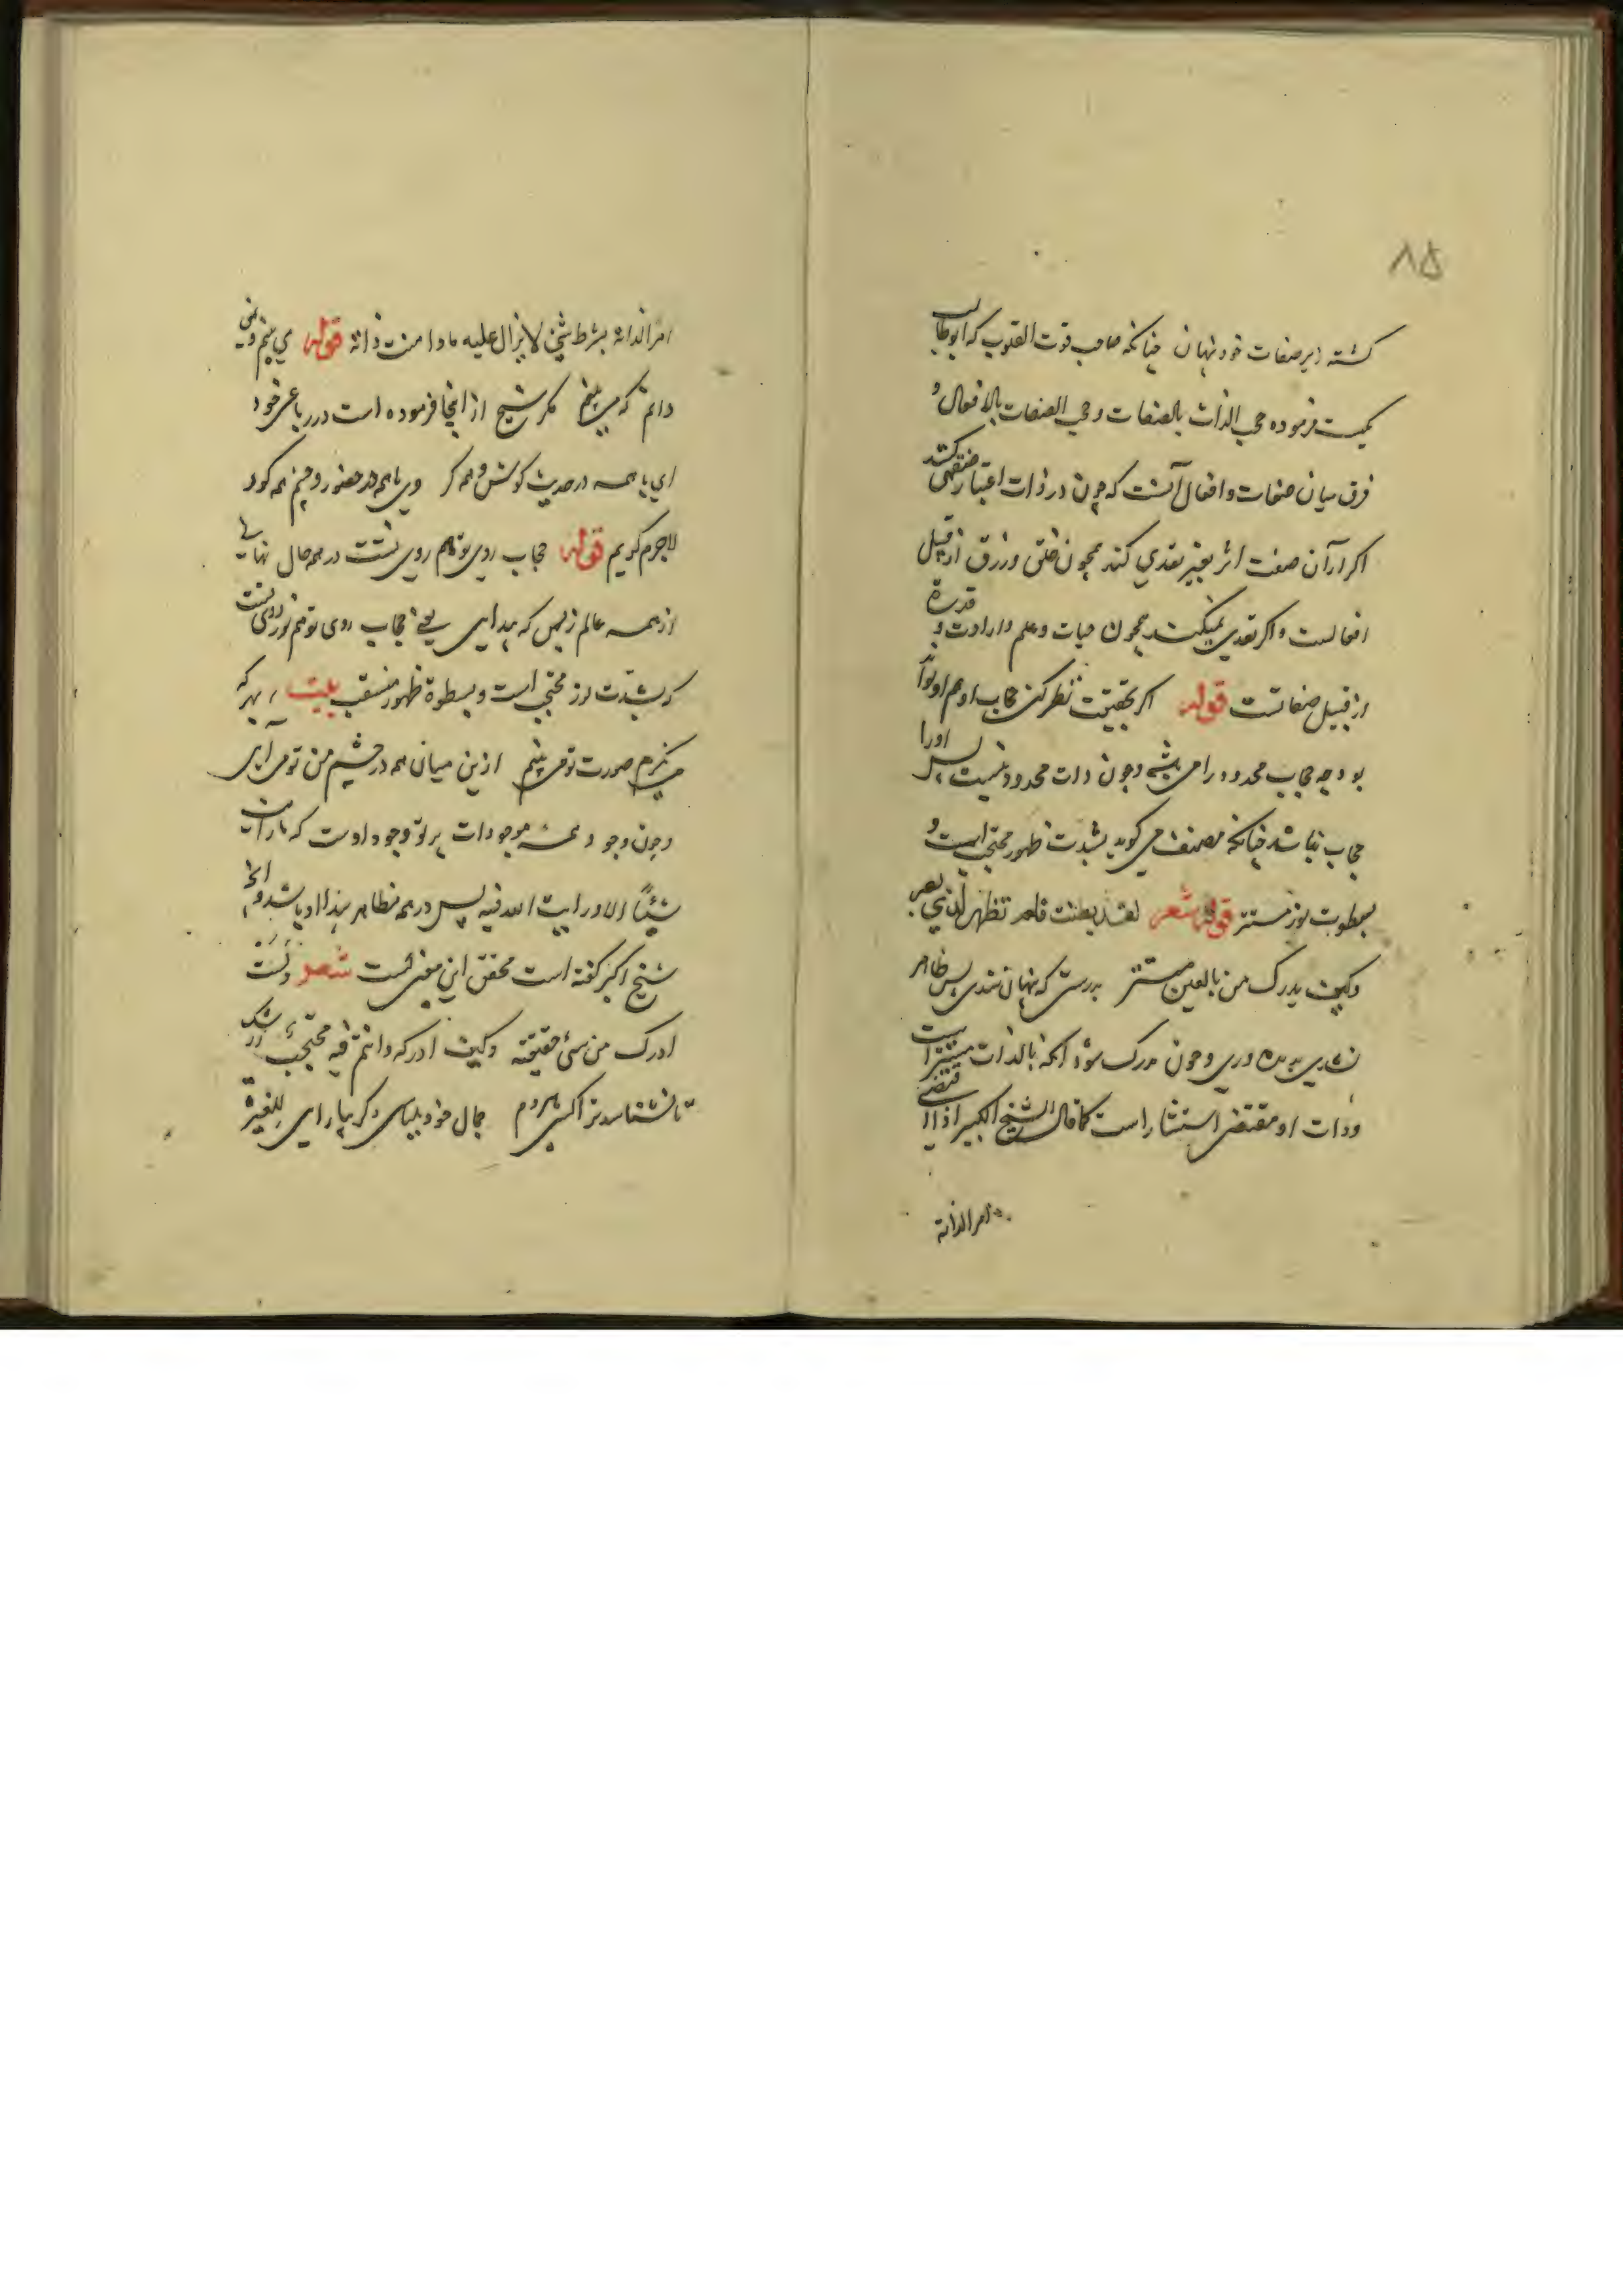 ۸۵
کشته زیر صفات خود نهان چنانکه صاحب قوت القلوب که ابوطالب
مکیست فرموده حجب الذات بالصفات و حجب الصفات بالافعال و
فرق میان صفات و افعال آنست که چون در ذات اعتبار صفتی کنند
اکر از آن صفت اثر بغیر تعدی کند همچون خلق و رزق از قبیل
افعالست و اکر تعدی نمیکند همچون حیات و علم و ارادت و قدرة
از قبیل صفاتست قوله اکر بحقیقت نظر کنی حجاب او هم او تواند
بود چه حجاب محدود را می باشد و چون ذات محدود نیست پس او را
حجاب نباشد چنانکه مصنف می کوید بشدت ظهور محتجب است و
بسطوت نور مستتر قوله شعر لقد بطنت فلم تظهر لذی بصر
وکیف یدرک من بالعین مستتر بدرستی که نهان شدی پس ظاهر
نشدی به دیده وری و چون مدرک شود آنکه بالذات مستتر است
و ذات او مقتضی استتار است کما قال الشیخ الکبیر اذا اقتضی
امرا لذاته
امرا لذاته بشرط شیئ لا یزال علیه مادامت ذاته قوله می بینم و نمی
دانم که می بینم مکر شیخ از اینجا فرموده است در رباعی خود
ای با همه در حدیث و کوش همه کر وی با همه در حضور و چشم همه کور
لاجرم کویم قوله حجاب روی تو هم روی تست در همه حال نهانی
از همه عالم ز بس که پیدایی یعنی حجاب روی تو هم نور روی تست
که بشدت نور محتجب است و بسطوة ظهور منتقب بیت بهر که
می نکرم صورت تو می بینم ازین میان همه در چشم من تو می آیی
و چون وجود همه موجودات پرتو وجود اوست که ما رایت
شیئا الا و رایت الله فیه پس در همه مظاهر پیدا او باشد و آنچه
شیخ اکبر کفته است محقق این معنی است شعر ولست
ادرک من شیء حقیقته وکیف ادرکه وانتم فیه محتجب ز رشک
تا نشناسد ترا کسی هر دم جمال خود بلباسی دکر بیارایی للغیرة